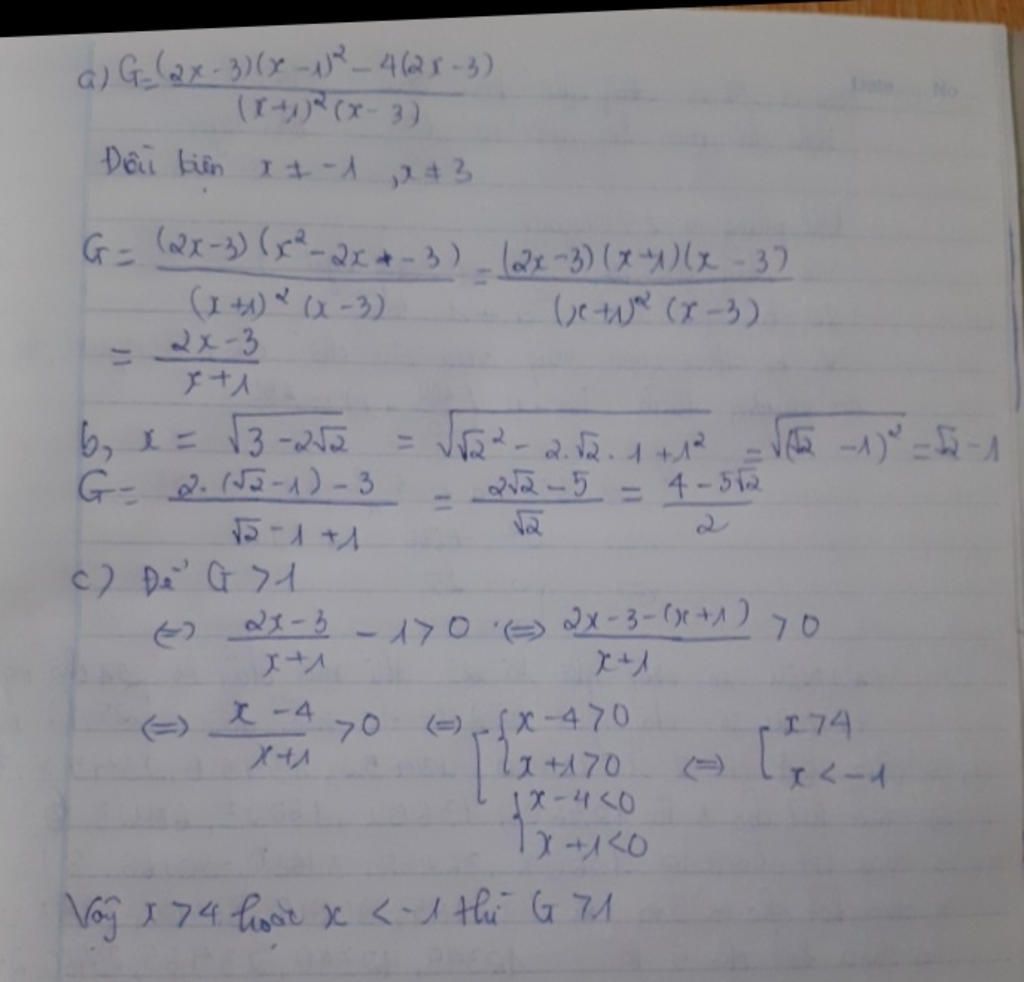 a) G = ((2x - 3)(x - 1)² - 4(2x - 3)) / ((x + 1)² (x - 3))
Điều kiện x ≠ -1 , x ≠ 3
G = ((2x - 3)(x² - 2x - 3)) / ((x + 1)² (x - 3)) = ((2x - 3)(x + 1)(x - 3)) / ((x + 1)² (x - 3))
= (2x - 3) / (x + 1)
b, x = √(3 - 2√2) = √(√2² - 2.√2.1 + 1²) = √((√2 - 1)²) = √2 - 1
G = (2.(√2 - 1) - 3) / (√2 - 1 + 1) = (2√2 - 5) / √2 = (4 - 5√2) / 2
c) Để G > 1
⇔ (2x - 3) / (x + 1) - 1 > 0 ⇔ (2x - 3 - (x + 1)) / (x + 1) > 0
⇔ (x - 4) / (x + 1) > 0 ⇔ [ { x - 4 > 0 
x + 1 > 0 
{ x - 4 < 0
x + 1 < 0
⇔ [ x > 4
x < -1
Vậy x > 4 hoặc x < -1 thì G > 1
Date No